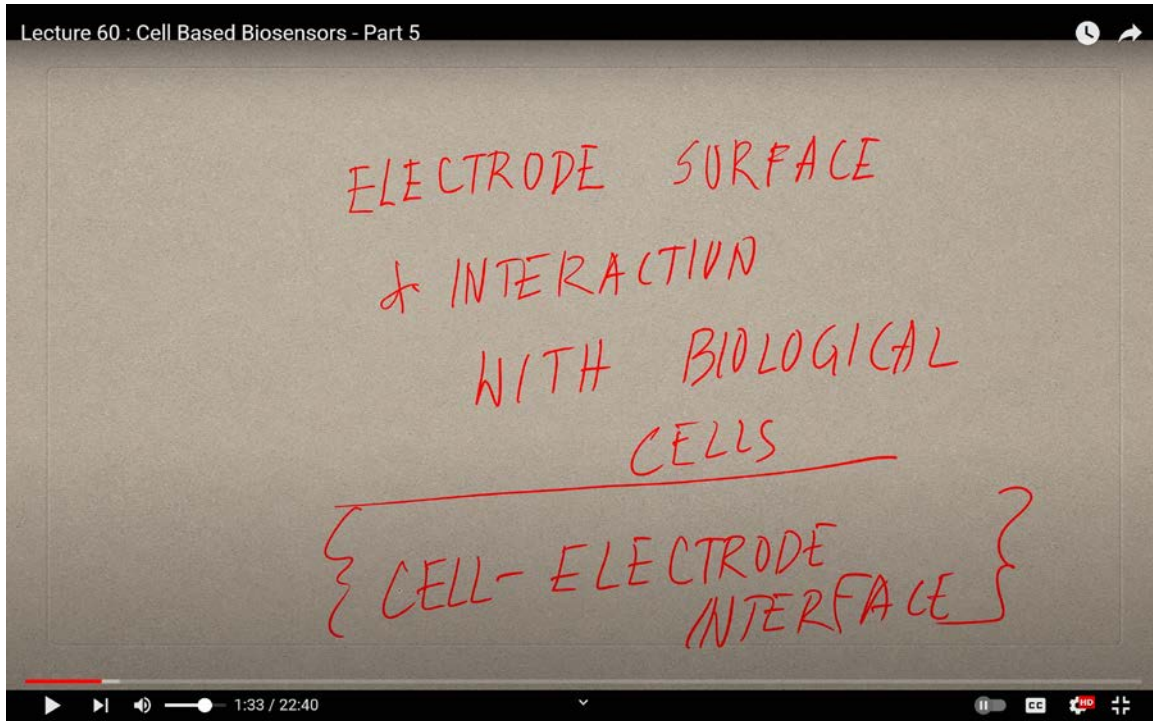 Lecture 60 : Cell Based Biosensors - Part 5
ELECTRODE SURFACE
& INTERACTION
WITH BIOLOGICAL
CELLS
{ CELL- ELECTRODE
INTERFACE }
1:33 / 22:40
CC
HD